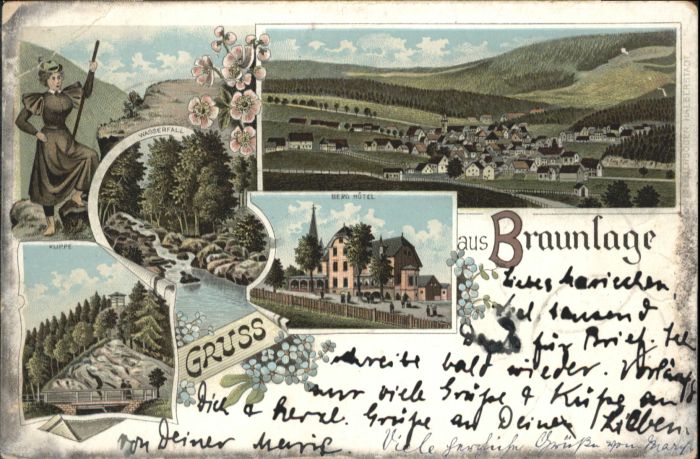 WASSERFALL
BERG HÔTEL
KLIPPE
GRUSS
aus Braunlage
Liebes Mariechen.
Viel tausend
Dank für Brief. Ich
schreibe bald wieder. Vorläuf.
nur viele Grüße & Küße an
Dich & herzl. Grüße an Deine Lieben.
von Deiner Marie.
Viele herzliche Grüße von Mary.